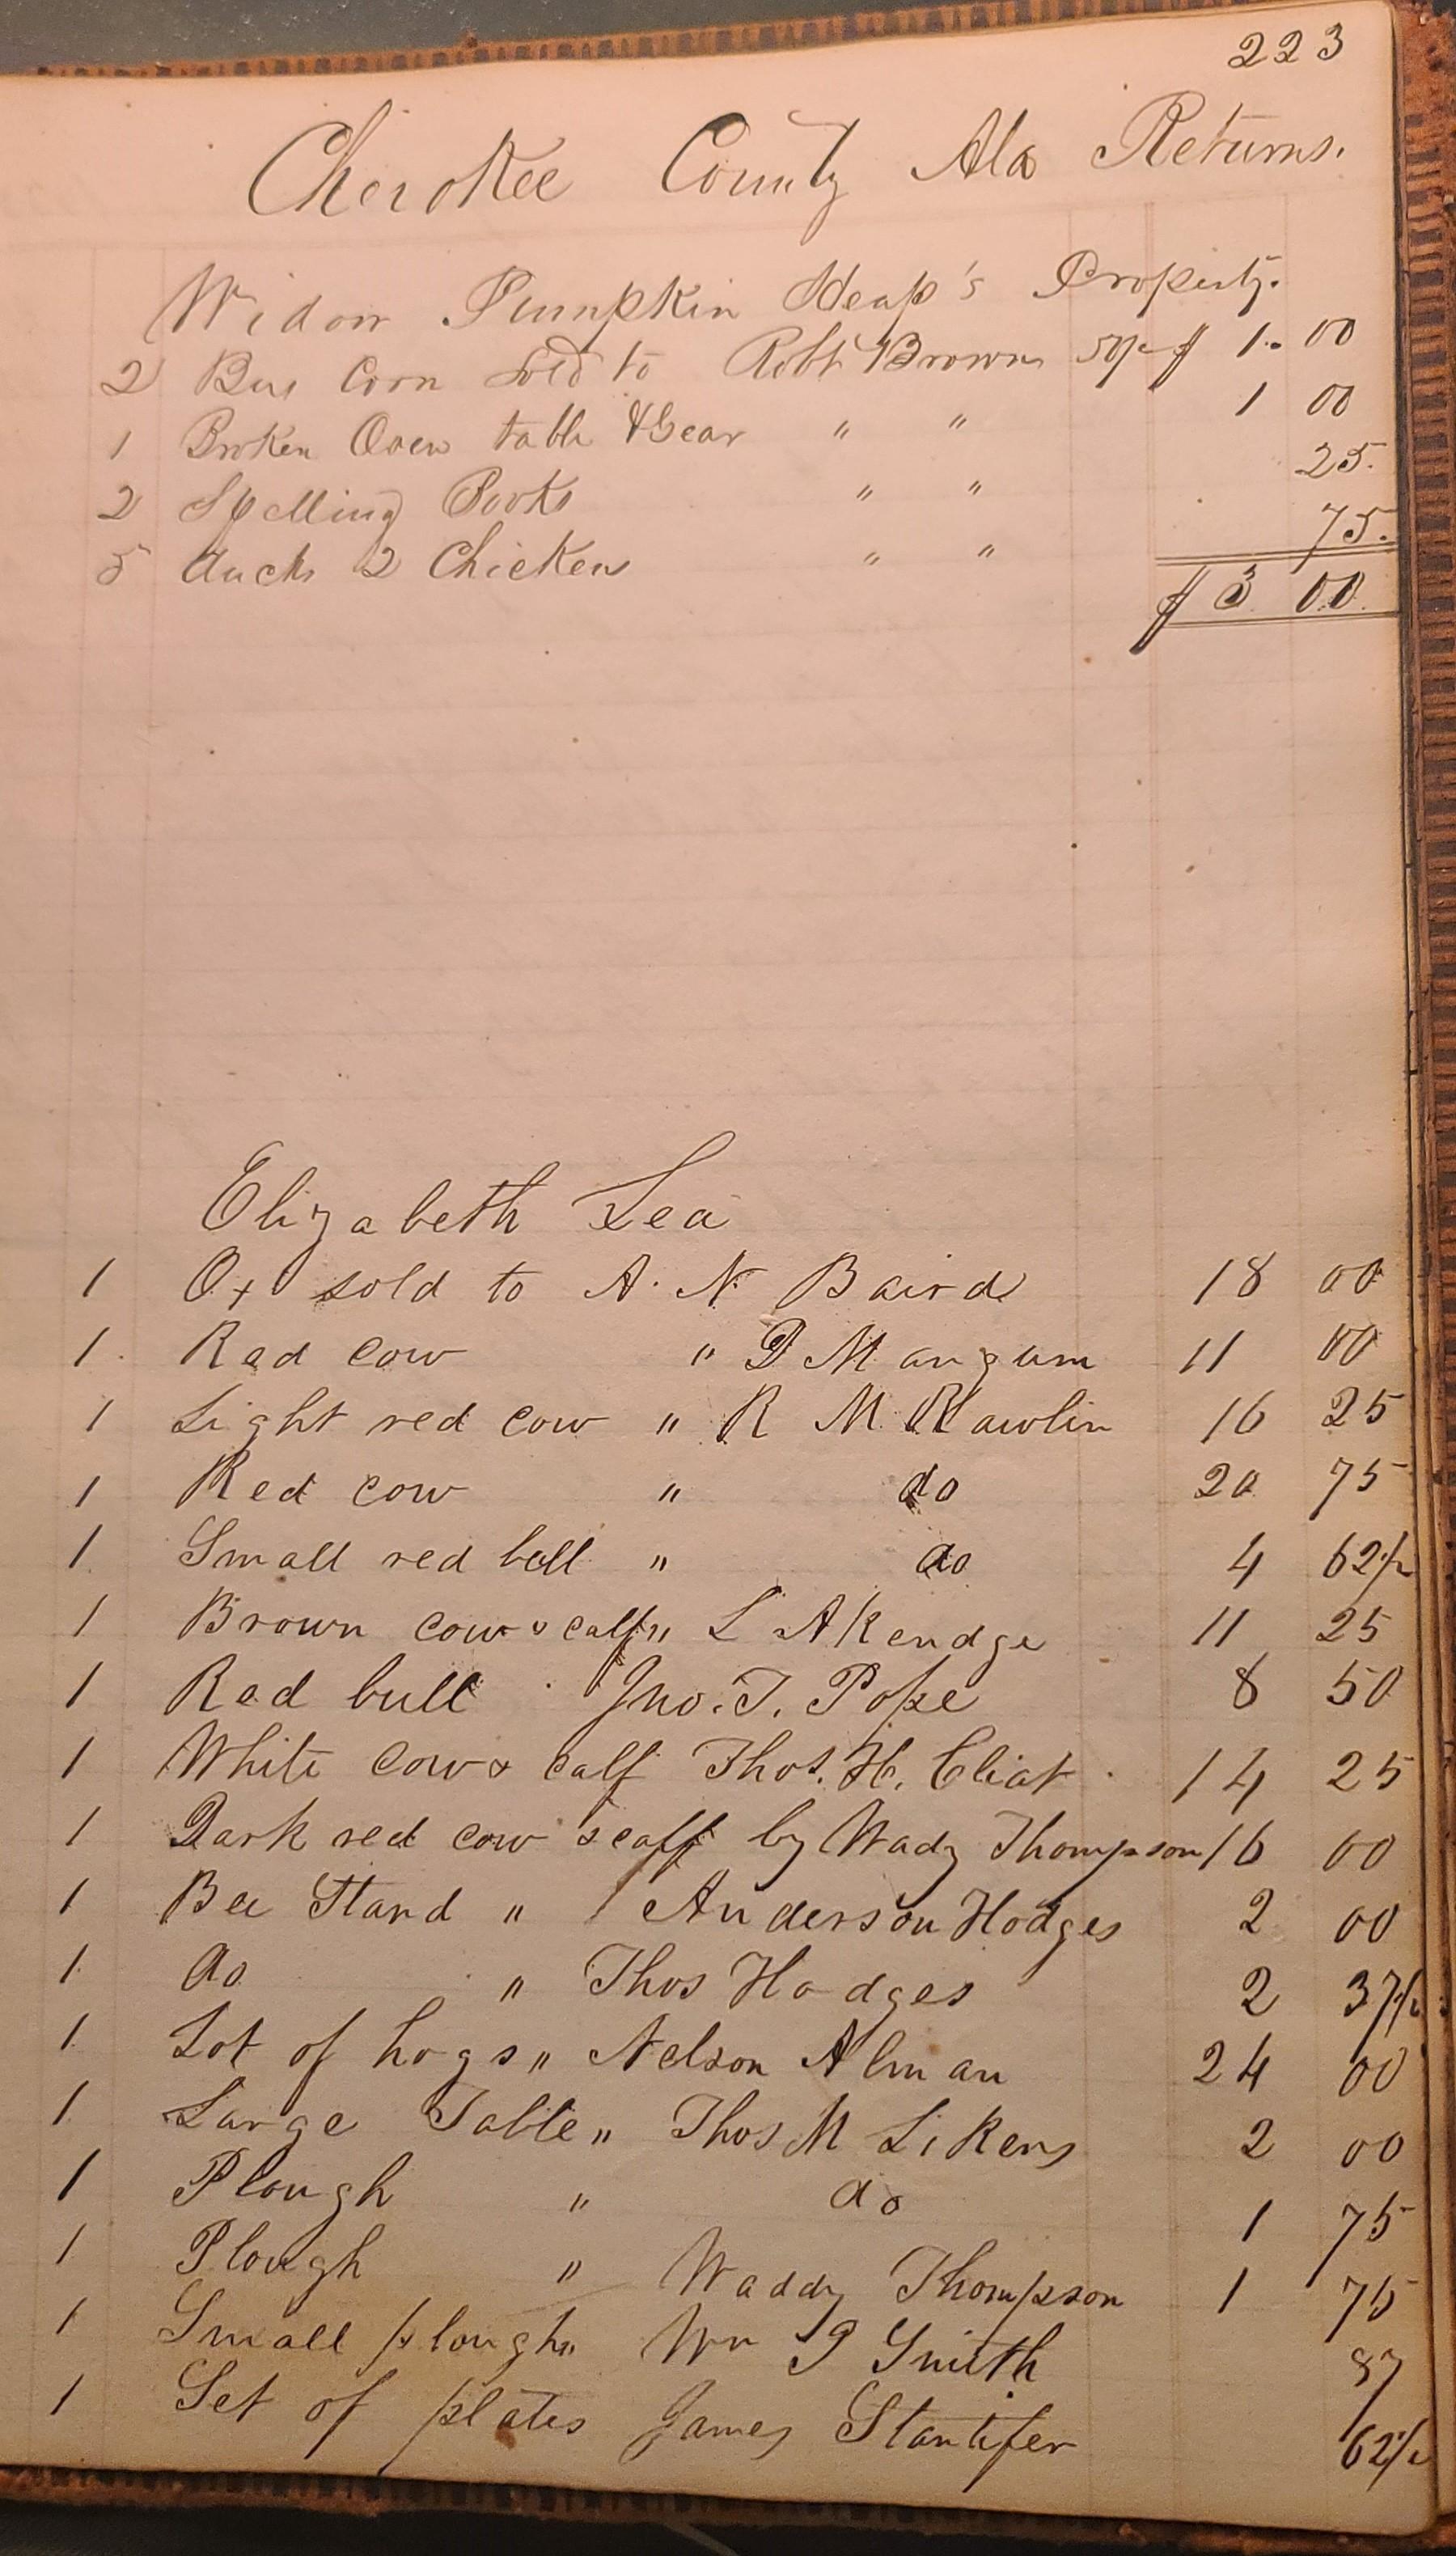 223
Cherokee County Ala Returns.
Widow Pumpkin Heap's Property.
2 Bus Corn Sold to Robt Brown 50c $ 1.00
1 Broken Oven table & Gear " " 1 00
2 Spelling Books " " 25.
5 ducks 2 Chickens " " 75.
$ 3 00
Elizabeth Lea
1 Ox sold to A. N. Baird 18 00
1 Red cow " D Mangum 11 00
1 Light red cow " R M Rawlin 16 25
1 Red cow " do 20 75
1 Small red bull " do 4 62½
1 Brown cow & calf " L Akendge 11 25
1 Red bull Jno. T. Pope 8 50
1 White cow & calf Thos. H. Cliat 14 25
1 Dark red cow & calf by Wady Thompson 16 00
1 Bee Stand " Anderson Hodges 2 00
1 do " Thos Hodges 2 37½
1 Lot of hogs " Nelson Alman 24 00
1 Large Table " Thos M Likens 2 00
1 Plough " do 1 75
1 Plough " Waddy Thompson 1 75
1 Small plough " Wm P Smith 87
1 Set of plates James Stantifer 62½